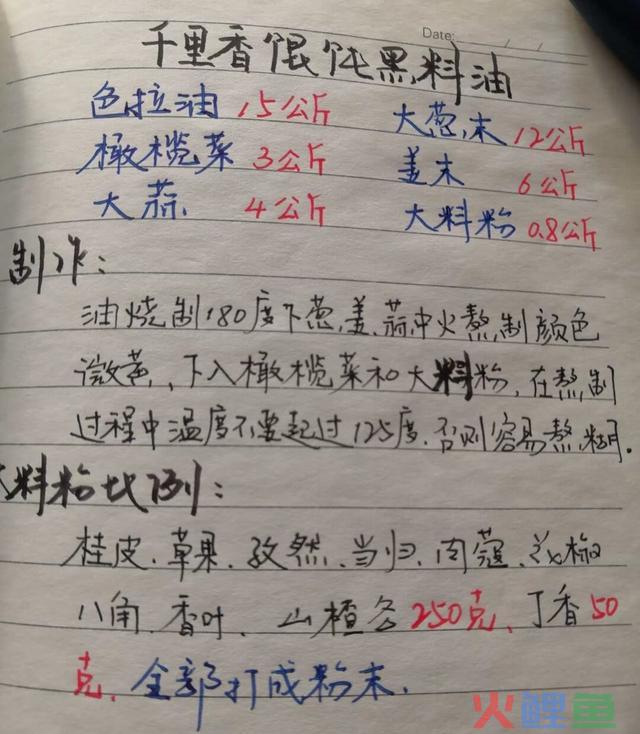 Date: / /
千里香馄饨黑料油
色拉油 15公斤 大葱末 12公斤
橄榄菜 3公斤 姜末 6公斤
大蒜 4公斤 大料粉 0.8公斤
制作：
油烧制180度下葱、姜、蒜、中火熬制颜色
微黄、下入橄榄菜和大料粉，在熬制
过程中温度不要起过125度，否则容易熬糊.
大料粉比例：
桂皮、草果、孜然、当归、肉蔻、花椒
八角、香叶、山楂各250克、丁香50
克，全部打成粉末.
火鲤鱼